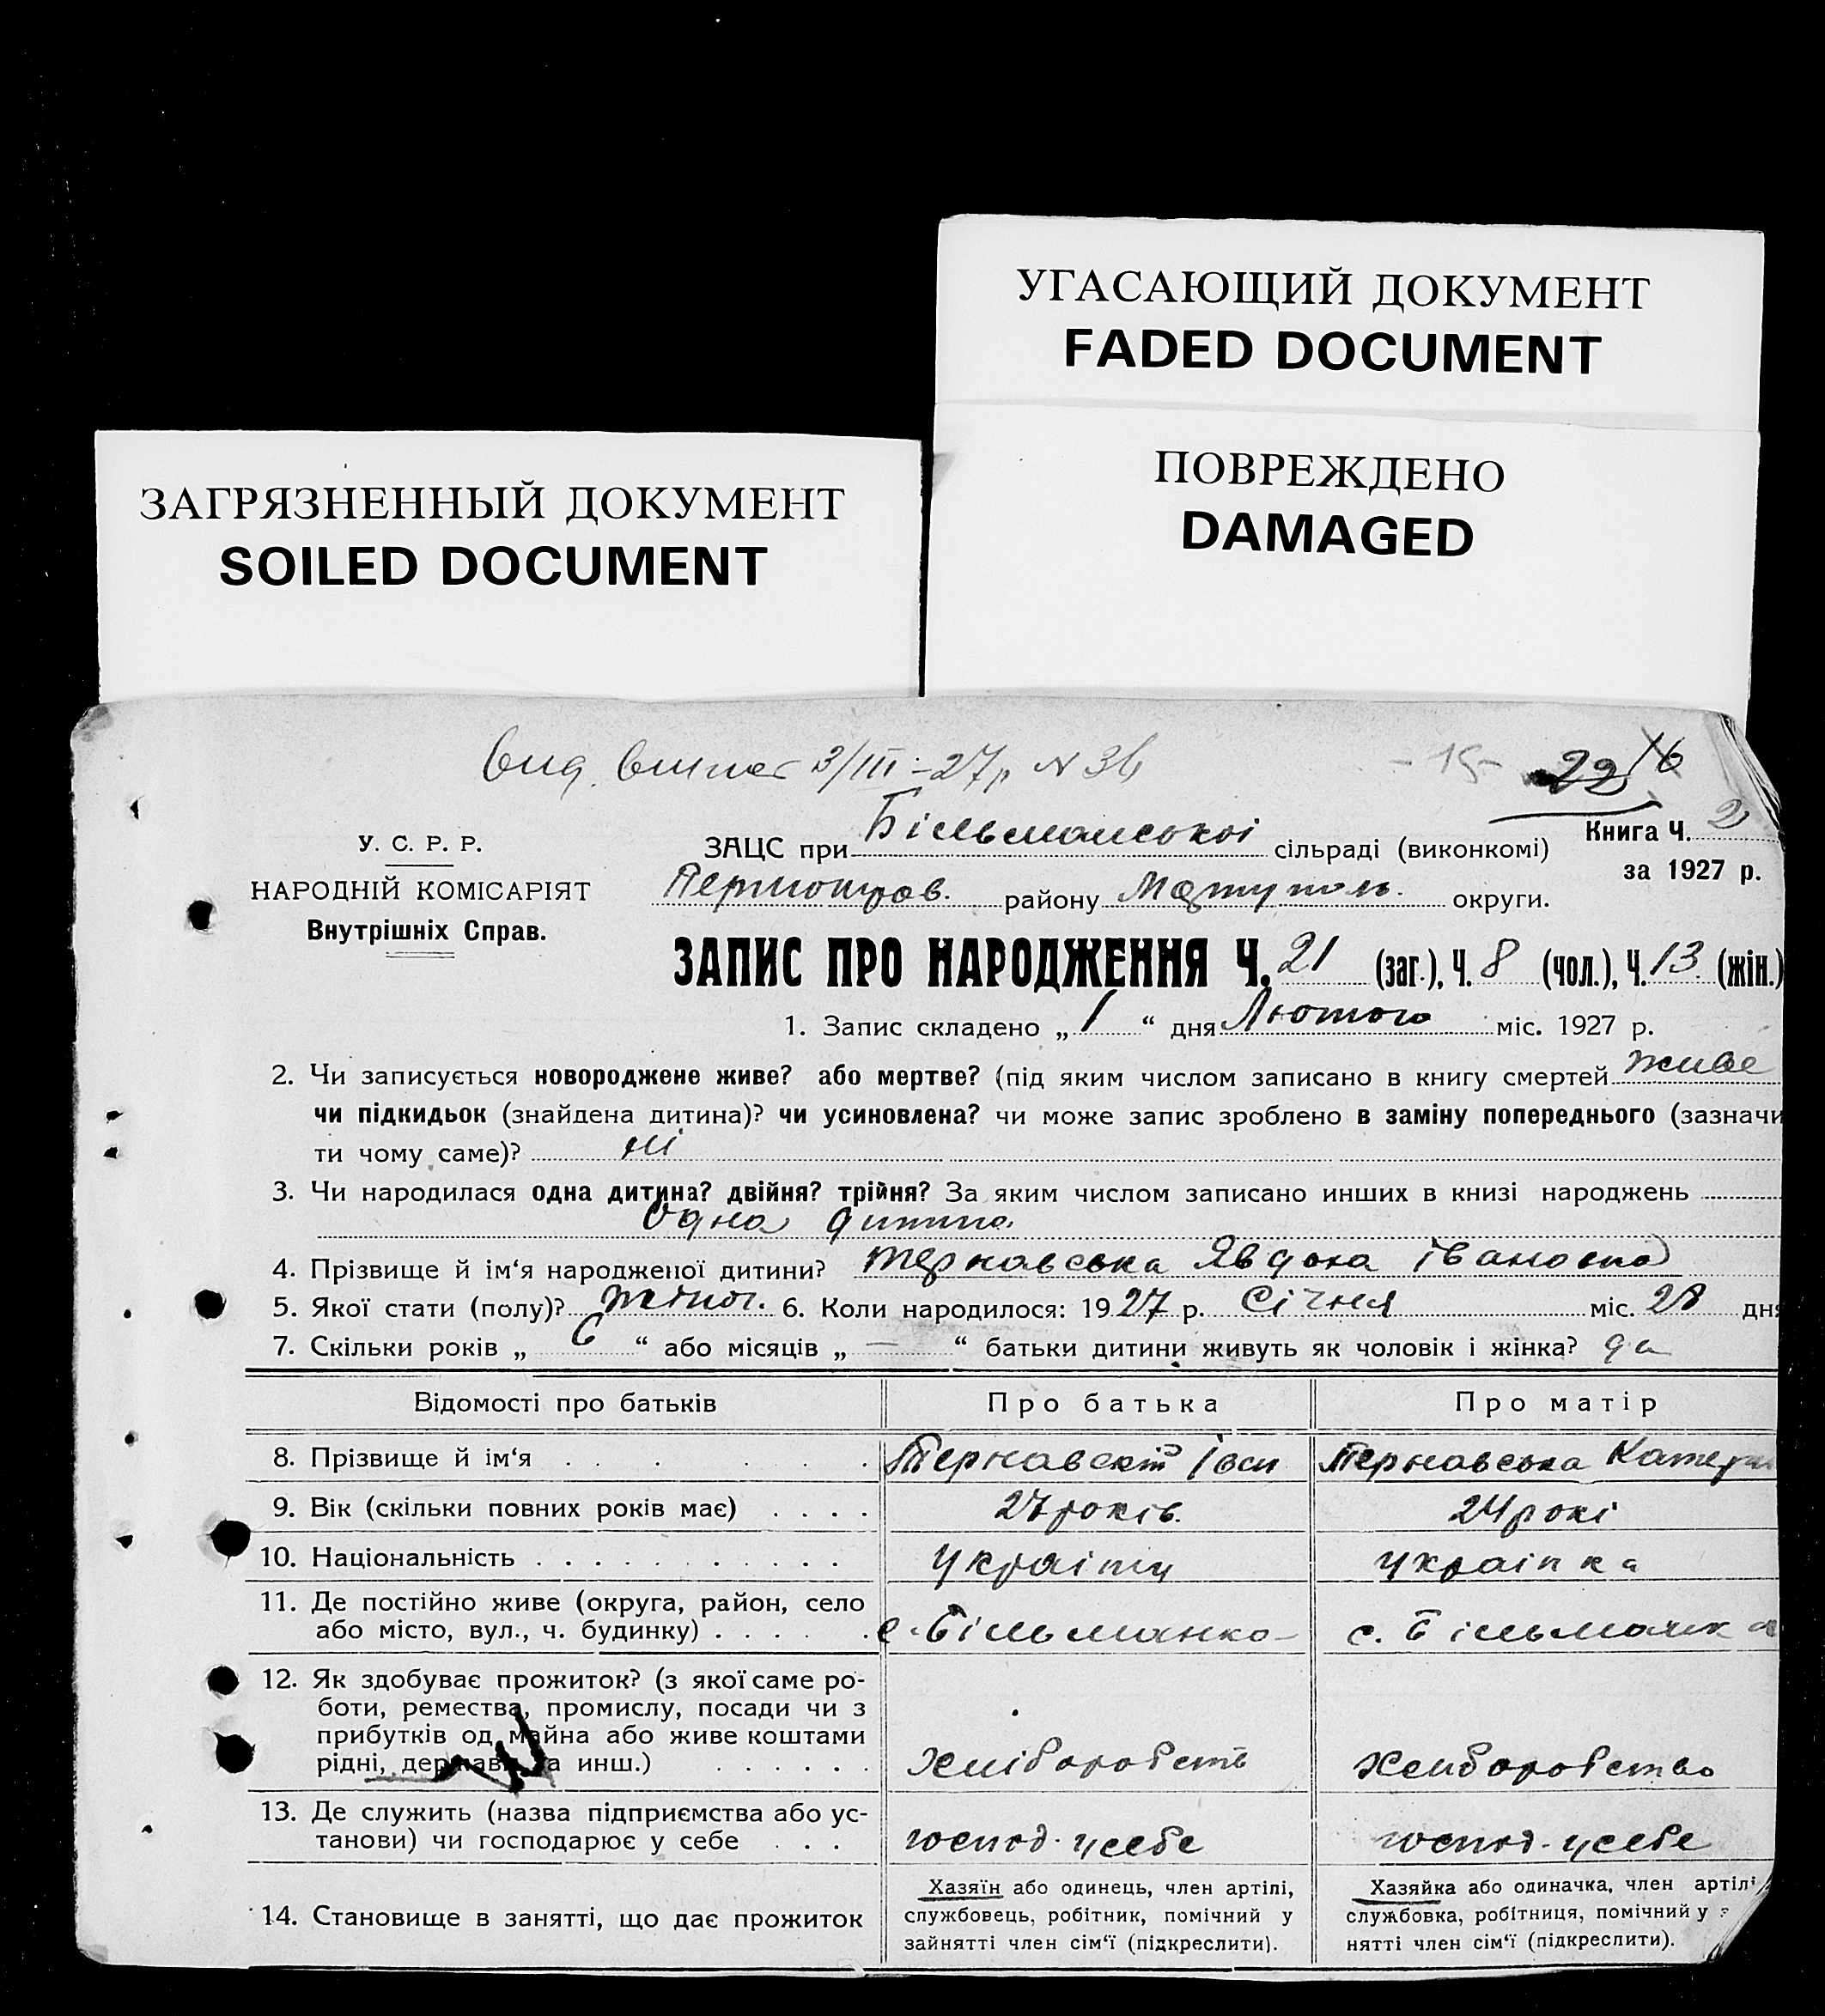 УГАСАЮЩИЙ ДОКУМЕНТ
FADED DOCUMENT
ПОВРЕЖДЕНО
DAMAGED
ЗАГРЯЗНЕННЫЙ ДОКУМЕНТ
SOILED DOCUMENT
3/III-27р N 36
-15- 22 16
У. С. Р. Р.
НАРОДНІЙ КОМІСАРІЯТ
Внутрішніх Справ.
ЗАЦС при Більманської сільраді (виконкомі)
Книга Ч. 2
за 1927 р.
району округи.
ЗАПИС ПРО НАРОДЖЕННЯ Ч. 21 (заг.), Ч. 8 (чол.), Ч. 13 (жін.)
1. Запис складено „ 1 “ дня Лютого міс. 1927 р.
2. Чи записується новороджене живе? або мертве? (під яким числом записано в книгу смертей живе
чи підкидьок (знайдена дитина)? чи усиновлена? чи може запис зроблено в заміну попереднього (зазначи
ти чому саме)? ні
3. Чи народилася одна дитина? двійня? трійня? За яким числом записано инших в книзі народжень
Одна дитина
4. Прізвище й ім‘я народженої дитини? Тернавська Явдоха Івановна
5. Якої стати (полу)? жіноч. 6. Коли народилося: 1927 р. Січня міс. 28 дня
7. Скільки років „ 6 “ або місяців „ — “ батьки дитини живуть як чоловік і жінка? да
Відомості про батьків Про батька Про матір
8. Прізвище й ім‘я Тернавскій Іван Тернавська Катери
9. Вік (скільки повних років має) 27 років. 24 рокі
10. Національність україннц українка
11. Де постійно живе (округа, район, село
або місто, вул., ч. будинку) с. Більманка с. Більманка
12. Як здобуває прожиток? (з якої саме ро-
боти, ремества, промислу, посади чи з
прибутків од майна або живе коштами
рідні, держави та инш.) хліборобств хліборобство
13. Де служить (назва підприємства або ус-
танови) чи господарює у себе господ. у себе господ. у себе
14. Становище в занятті, що дає прожиток
Хазяїн або одинець, член артілі,
службовець, робітник, помічний у
зайнятті член сім‘ї (підкреслити).
Хазяйка або одиначка, член артілі
службовка, робітниця, помічний у з
нятті член сім‘ї (підкреслити).